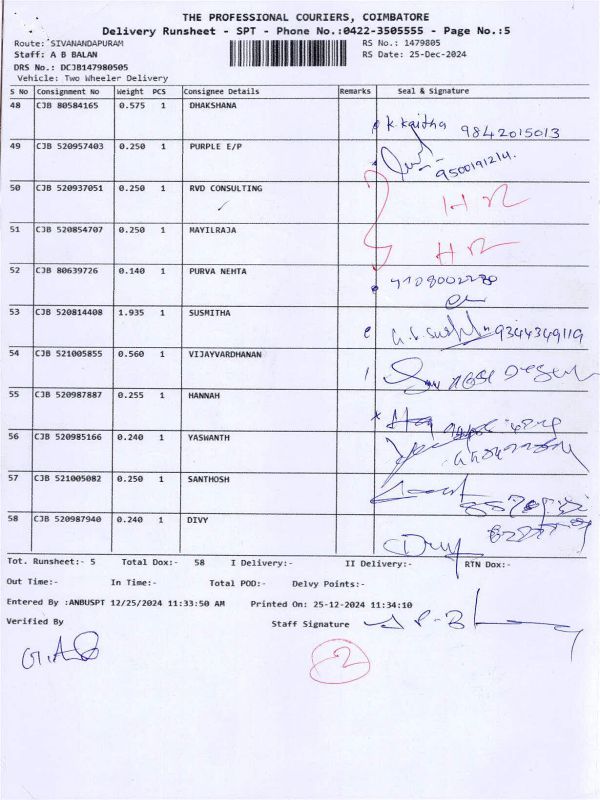 THE PROFESSIONAL COURIERS, COIMBATORE
Delivery Runsheet - SPT - Phone No.:0422-3505555 - Page No.:5
Route: SIVANANDAPURAM RS No.: 1479805
Staff: A B BALAN RS Date: 25-Dec-2024
DRS No.: DCJB147980505
Vehicle: Two Wheeler Delivery
S No Consignment No Weight PCS Consignee Details Remarks Seal & Signature
48 CJB 80584165 0.575 1 DHAKSHANA
K. Kavitha 9842015013
49 CJB 520957403 0.250 1 PURPLE E/P
9500191214.
50 CJB 520937051 0.250 1 RVD CONSULTING
H R
51 CJB 520854707 0.250 1 MAYILRAJA
H R
52 CJB 80639726 0.140 1 PURVA NEHTA
53 CJB 520814408 1.935 1 SUSMITHA
9344349119
54 CJB 521005855 0.560 1 VIJAYVARDHANAN
55 CJB 520987887 0.255 1 HANNAH
56 CJB 520985166 0.240 1 YASWANTH
57 CJB 521005082 0.250 1 SANTHOSH
58 CJB 520987940 0.240 1 DIVY
Tot. Runsheet:- 5 Total Dox:- 58 I Delivery:- II Delivery:- RTN Dox:-
Out Time:- In Time:- Total POD:- Delvy Points:-
Entered By :ANBUSPT 12/25/2024 11:33:50 AM Printed On: 25-12-2024 11:34:10
Verified By Staff Signature
2